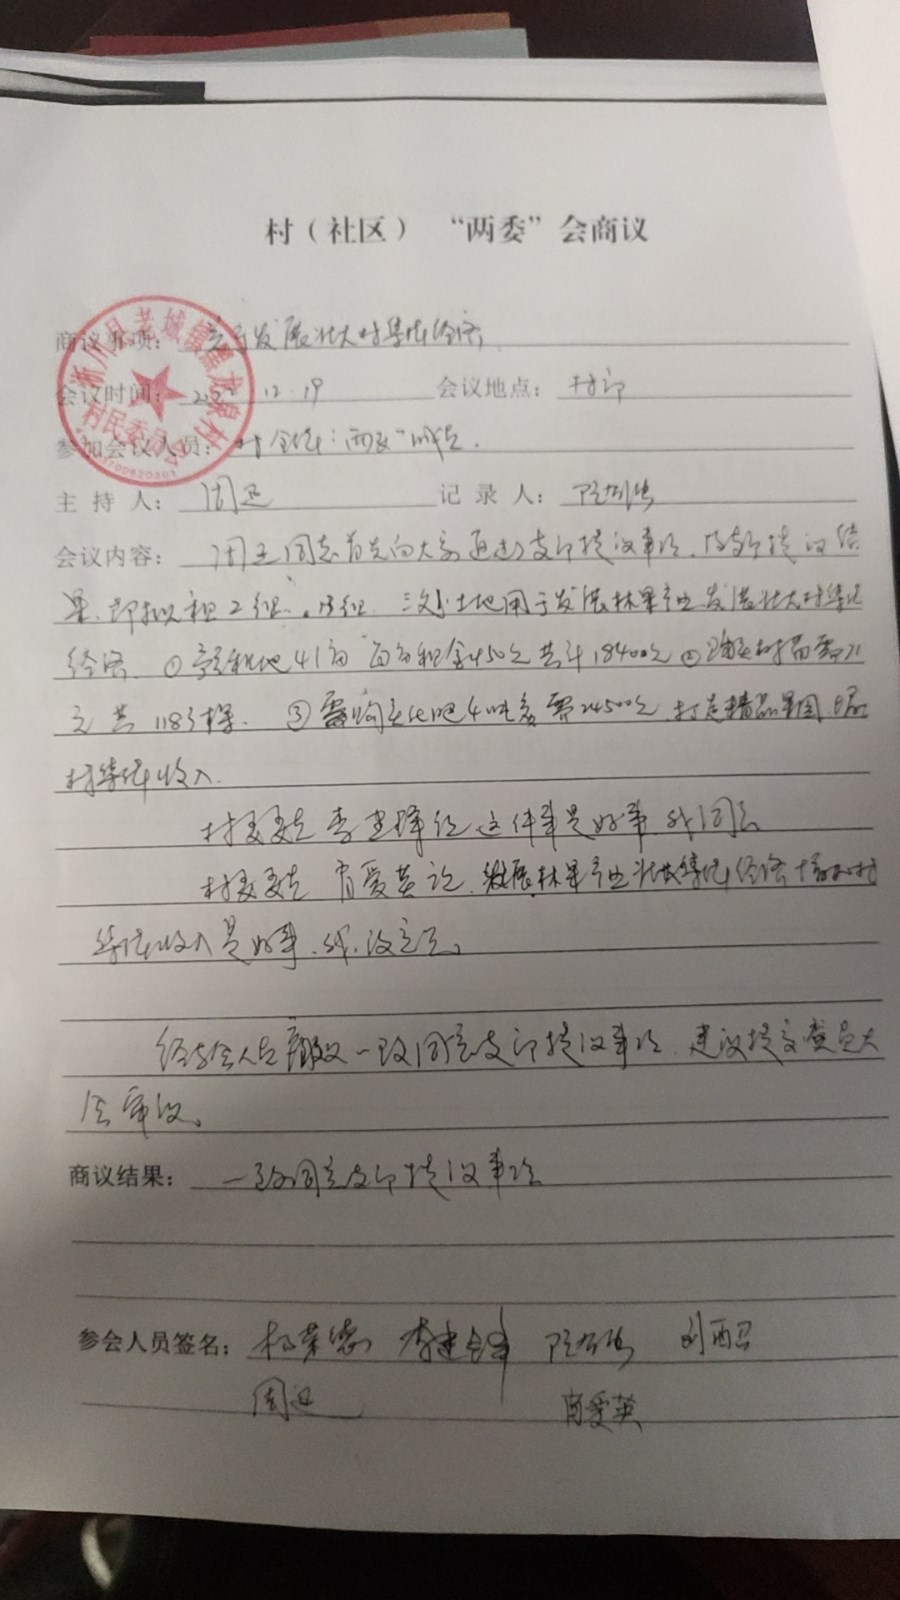 村（社区）“两委”会商议
淅川县老城镇黑龙泉村
村民委员会
商议事项：关于发展壮大村集体经济
会议时间：12.19 会议地点：村部
参加会议人员：村全体“两委”成员.
主持人：周迅 记录人：
会议内容：同志首先向大家通达支部提议事项，及支部提议结
果，即拟租2组、组 土地用于发展林果产业发展壮大村集体
经济 ① 租地41亩 每亩租金450元共计18400元 ② 树苗需
元共1183棵. ③ 需购 化肥4吨 需24500元，打造精品果园
村集体收入.
村委委员李建锋说 这件事是好事 我同意
村委委员肖爱英说，发展林果产业壮大集体经济 增加村
集体收入是好事，我没意见。
经与会人员商议一致同意支部提议事项，建议提交党员大
会审议。
商议结果：一致同意支部提议事项
参会人员签名：李建锋
周迅 肖爱英